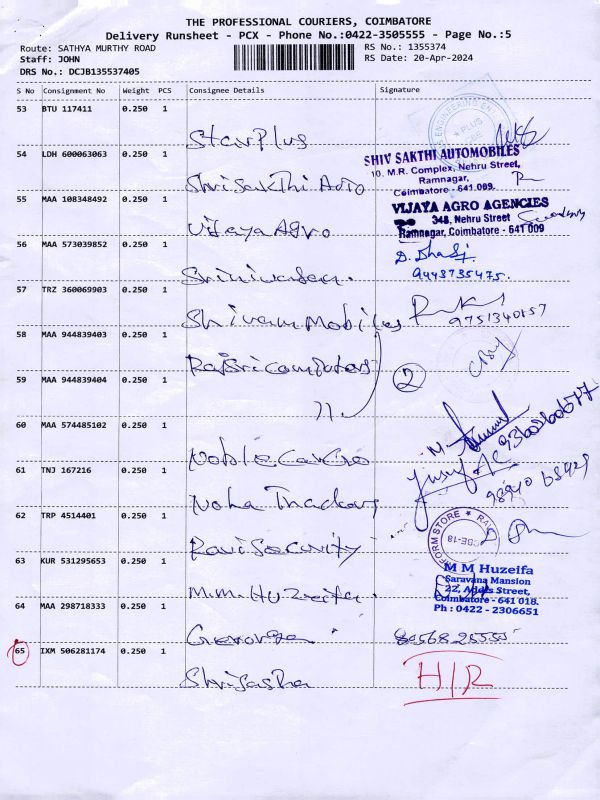 THE PROFESSIONAL COURIERS, COIMBATORE
Delivery Runsheet - PCX - Phone No.:0422-3505555 - Page No.:5
Route: SATHYA MURTHY ROAD
Staff: JOHN
DRS No.: DCJB135537405
RS No.: 1355374
RS Date: 20-Apr-2024
S No Consignment No Weight PCS Consignee Details Signature
53 BTU 117411 0.250 1
Star Plus
54 LDH 600063063 0.250 1
Shri Sakthi Agro
SHIV SAKTHI AUTOMOBILES
10, M.R. Complex, Nehru Street,
Ramnagar,
Coimbatore - 641 009.
55 MAA 108348492 0.250 1
Vijaya Agro
VIJAYA AGRO AGENCIES
348, Nehru Street
Ramnagar, Coimbatore - 641 009
56 MAA 573039852 0.250 1
Srinivasan.
9443735475.
57 TRZ 360069903 0.250 1
Shivam Mobiles
58 MAA 944839403 0.250 1
Rajsri computers
2
59 MAA 944839404 0.250 1
60 MAA 574485102 0.250 1
Noble Cargo
61 TNJ 167216 0.250 1
62 TRP 4514401 0.250 1
Ravi Security
63 KUR 531295653 0.250 1
M.M. Huzeifa.
M M Huzeifa
Saravana Mansion
Coimbatore - 641 018.
Ph : 0422 - 2306651
64 MAA 298718333 0.250 1
65 IXM 506281174 0.250 1
H/R